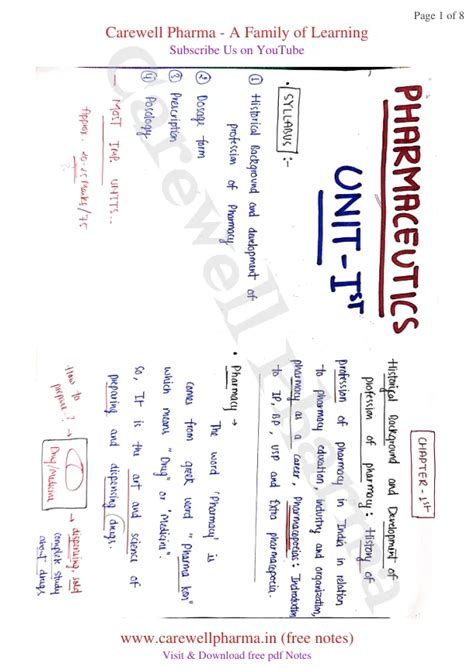 Page 1 of 8
Carewell Pharma - A Family of Learning
Subscribe Us on YouTube
Carewell Pharma
PHARMACEUTICS
UNIT-Iˢᵗ
• SYLLABUS :-
① Historical Background and development of
profession of Pharmacy
② Dosage form
③ Prescription
④ Posology
→ MOST IMP. UNITS..
Approx. 20-25 Marks/75
CHAPTER-1ˢᵗ
Historical Background and Development of
profession of pharmacy: History of
profession of pharmacy in India in relation
to pharmacy education, industry and organization,
pharmacy as a career, Pharmacopoeias: Introduction
to IP, BP, USP and Extra pharmacopoeia.
• Pharmacy →
The word 'Pharmacy' is
comes from greek word "Pharma kon"
which means "Drug" or "Medicine".
So, It is the art and science of
preparing and dispensing drugs.
How to
prepare? →
Drug/Medicine
→ dispensing, and
complete study
about drugs.
www.carewellpharma.in (free notes)
Visit & Download free pdf Notes